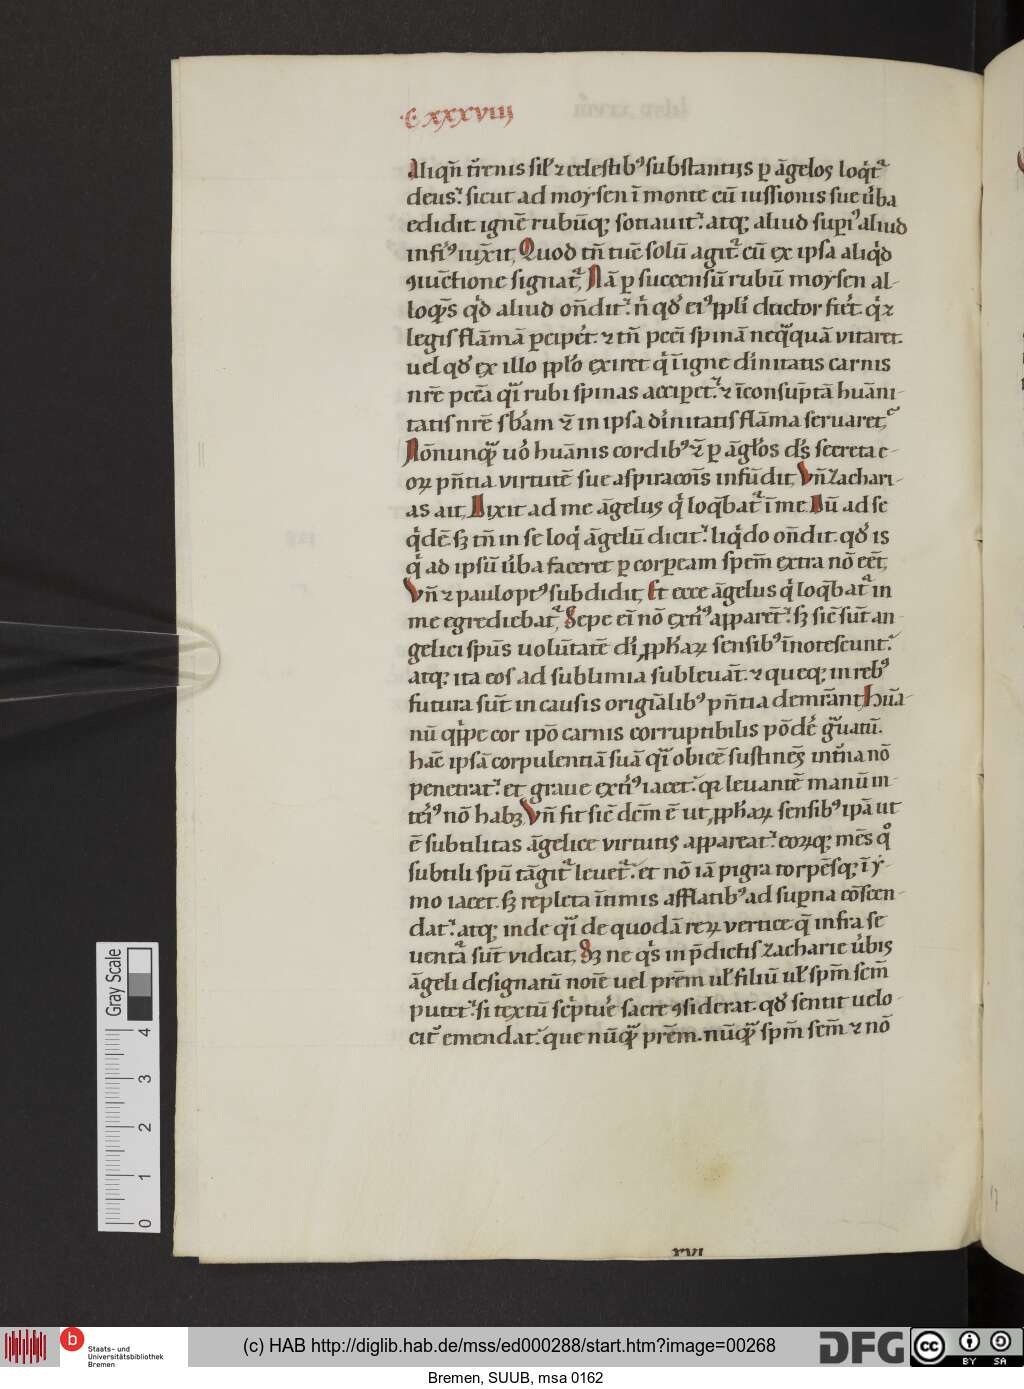 ·C· xxxviiij
Aliqn̄ t̄renis sil' ⁊ celestib⁹ substantijs ꝑ āgelos loqͥt᷑
deus. sicut ad moysen ī monte cū iussionis sue ūba
edidit ignē rubūq; sociauit. atq; aliud supi⁹ aliud
infi⁹ iūxit, Quod tn̄ tūc solū agit᷑. cū ex ipsa aliqͥd
ꝯiūctione signat᷑, Nā ꝑ succensū rubū moysen al-
loq̄ns qͥd aliud on̄dit. n̄ qd̓ ei⁹ ppl̓i ductor fiet. qͥ ⁊
legis flāmā ꝑcipet. ⁊ tn̄ pcc̄i spinā neq̄quā vitaret.
uel qd̓ ex illo pplo exiret qͥ ī igne diuinitatis carnis
nr̄e pcc̄a q̄i rubi spinas acciperet. ⁊ īconsūptā huāni-
tatis nr̄e sb̄am ⁊ in ipsa diuinitatis flāma seruaret,
Nōnunq̄ uo̓ huānis cordib⁹ ⁊ ꝑ āgl̓os dṡ secreta e-
oꝝ pn̄tia virtutē sue aspiracōis infūdit, Vn̄ zachari-
as ait, Dixit ad me āgelus qͥ loq̄bat᷑ ī me Dū ad se
qͥdē sꝫ tn̄ in se loqͥ āgelū dicit. liqͥdo on̄dit. qd̓ is
qͥ ad ipsū ūba faceret ꝑ corꝑeam spem̄ extra nō eēt,
Vn̄ ⁊ paulo pt⁹ subdidit, Et ecce āgelus qͥ loq̄bat᷑ in
me egrediebat᷑, Sepe eī nō exti⁹ apparēt. sꝫ sic̄ sūt an-
gelici spūs uolūtatē di̓ pph̄aꝝ sensib⁹ īnotescunt.
atq; ita eos ad sublimia subleuāt. ⁊ queq; in reb⁹
futura sūt in causis origīalib⁹ pn̄tia demr̄ant, Hūa-
nū qͥppe cor ipō carnis corruptibilis pōde̓ gͣuatū.
hāc ipsā corpulentiā suā q̄i obicē sustinēs intn̄a nō
penetrat. et graue exti⁹ iacet. qꝛ leuantē manū in-
tei⁹ nō habꝫ, Vn̄ fit sic̄ dc̄m ē ut pph̄aꝝ sensib⁹ ipā ut
ē subtilitas āgelice virtutis appareat. eoꝝq; mēs qͦ
subtili spū tāgit᷑ leuet᷑. et nō iā pigra torpēsq; ī y-
mo iacet. sꝫ repleta ītimis afflatib⁹ ad supna cōscen-
dat. atq; inde q̄i de quodā reꝝ vertice q̄ infra se
uentā sūt videat, Sꝫ ne qͥs in p̄dictis zacharie ūbis
āgeli designatū noīe uel prēm ul̓ filiū ul̓ spm̄ scm̄
putet. si textū scptue̓ sacre ꝯsiderat. qd̓ sentit uelo-
cit̓ emendat. que nūq̄ prēm. nūq̄ spm̄ scm̄ ⁊ nō
XVI
Gray Scale
4
3
2
1
0
b
Staats- und
Universitätsbibliothek
Bremen
(c) HAB http://diglib.hab.de/mss/ed000288/start.htm?image=00268
DFG
cc
BY SA
Bremen, SUUB, msa 0162